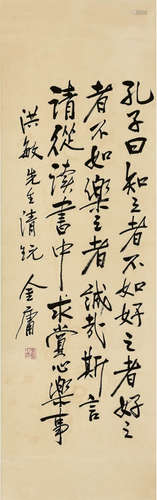 孔子曰知之者不如好之者好之
者不如樂之者誠哉斯言
請從讀書中求賞心樂事
洪敏先生清玩 金庸